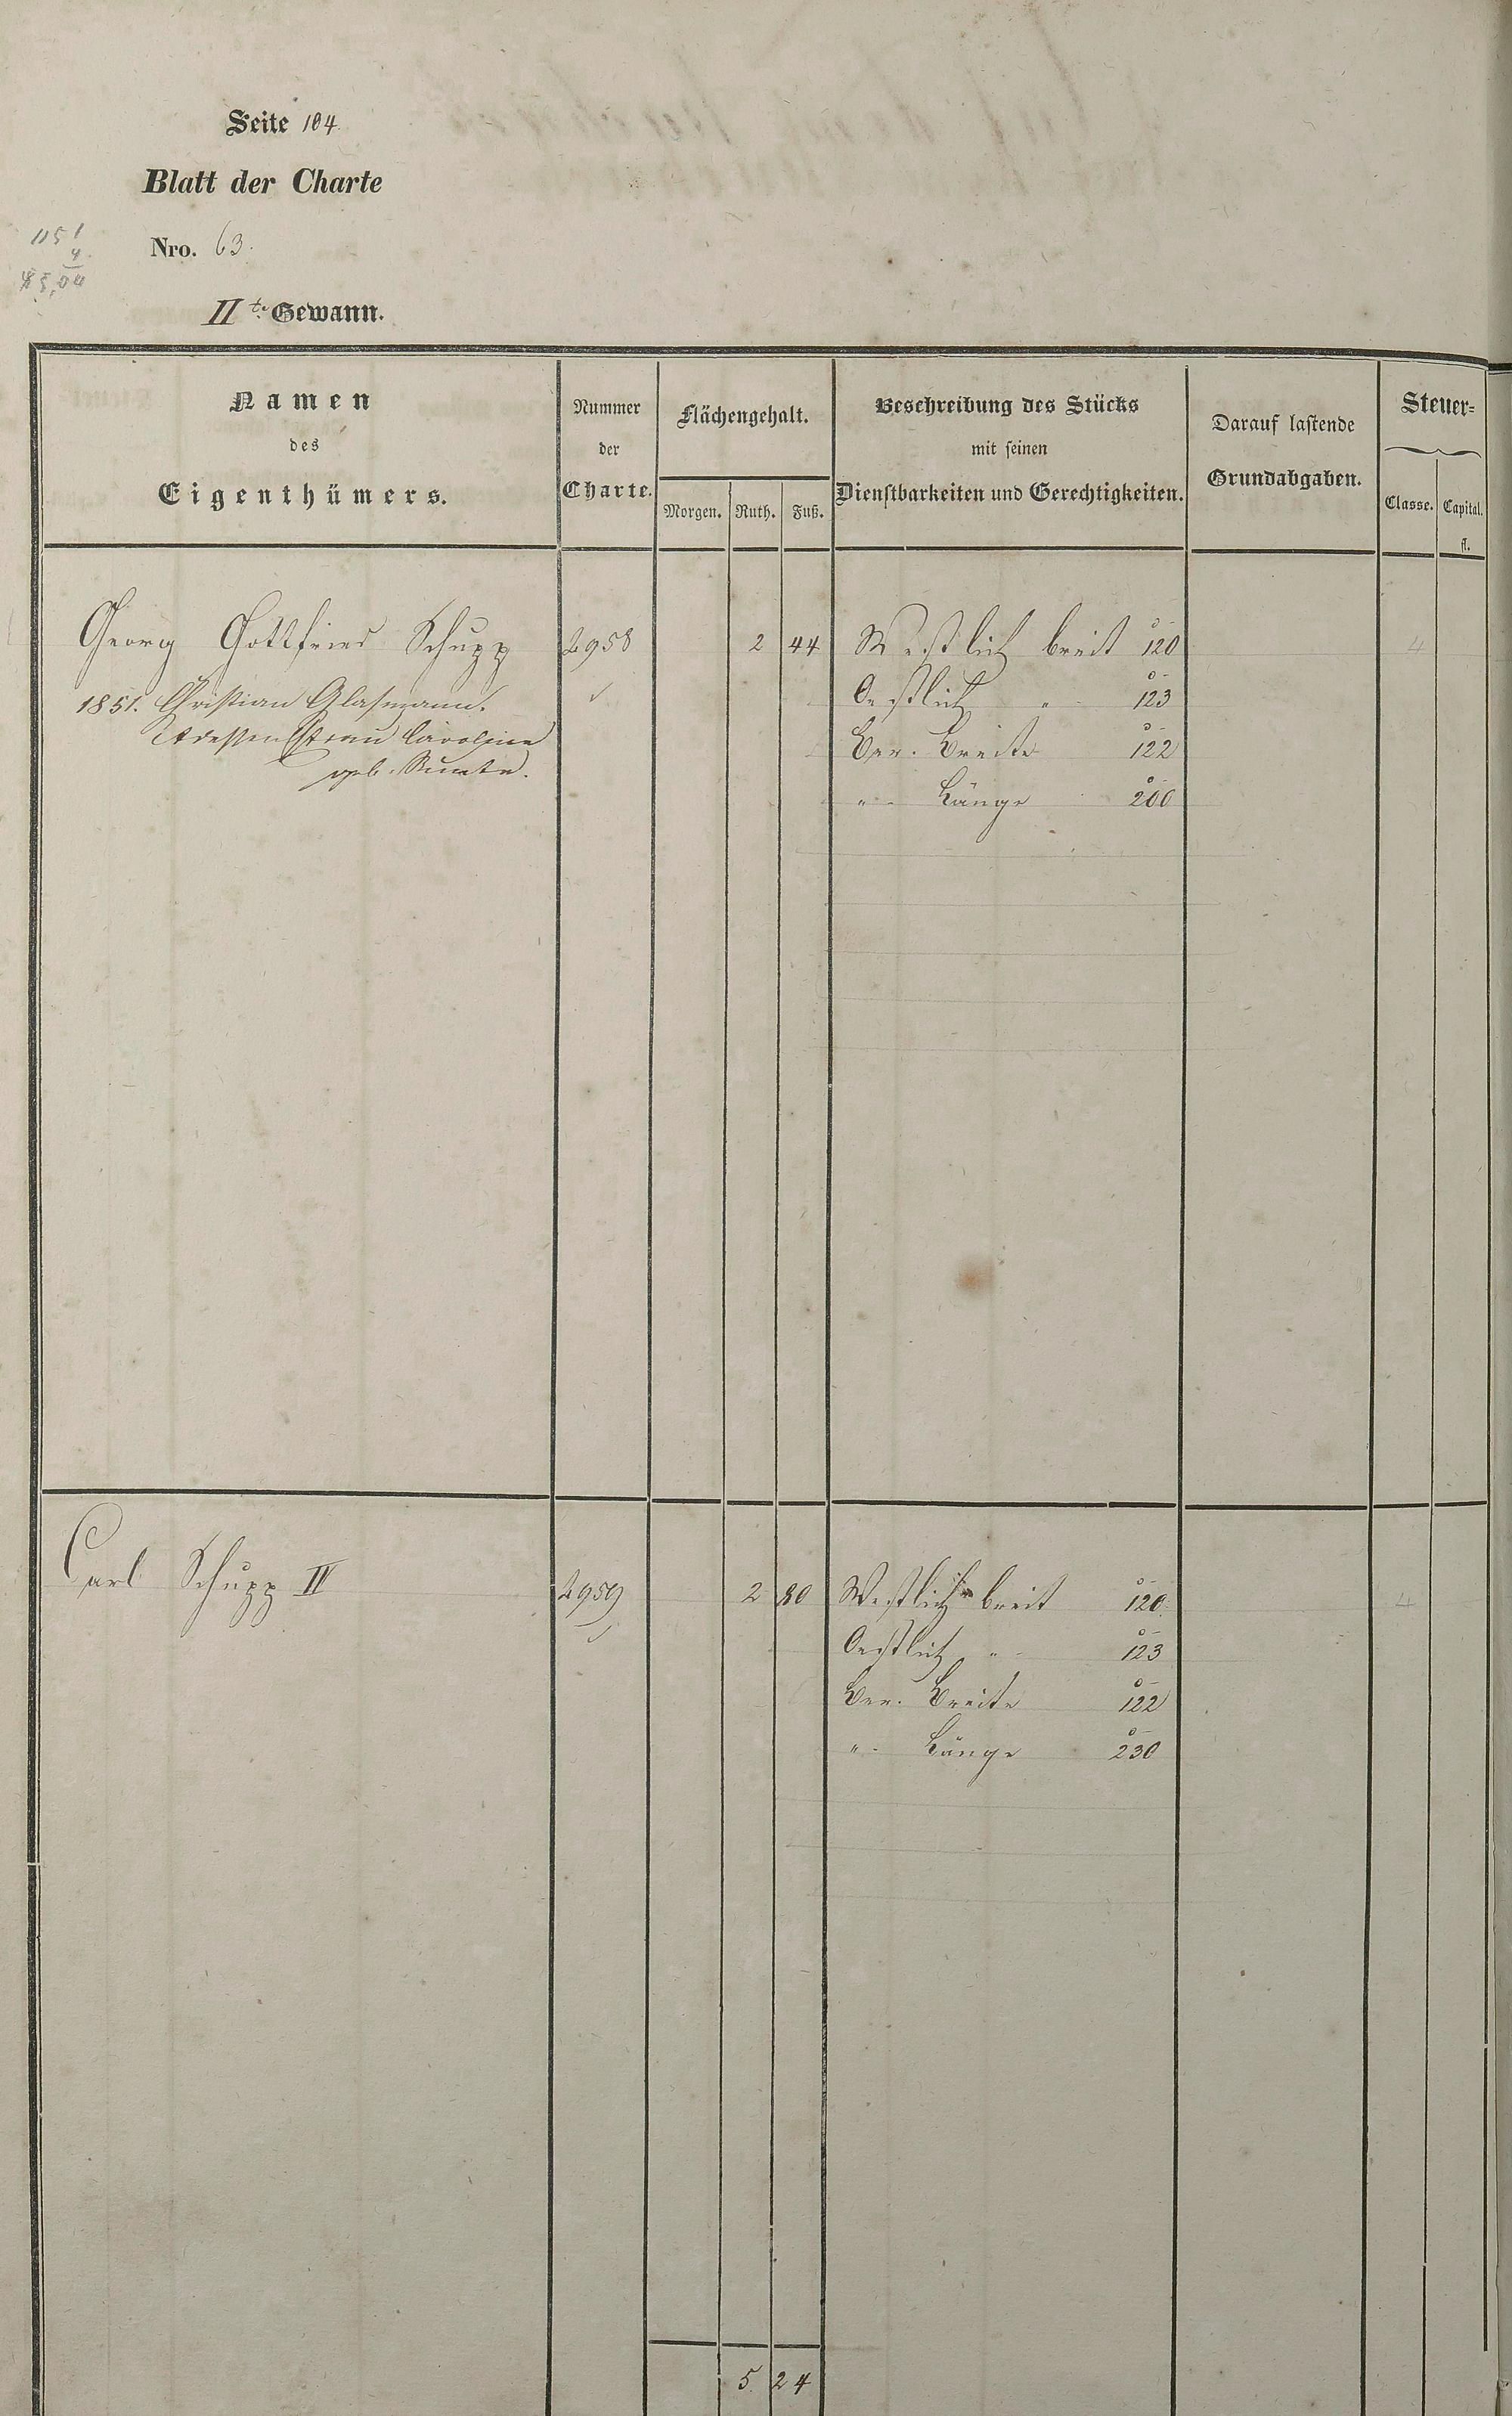 Seite 104.
Blatt der Charte
Nro. 63.
1151
4
IIte Gewann.
Namen
des
Eigenthümers.
Nummer
der
Charte.
Flächengehalt.
Morgen. Ruth. Fuß.
Beschreibung des Stücks
mit seinen
Dienstbarkeiten und Gerechtigkeiten.
Darauf lastende
Grundabgaben.
Steuer=
Classe. Capital.
fl.
Georg Gottfried Schupp 2958 2 44 Westlich breit 120 4
1851. Christian Glasmann. Oestlich " 123
dessen Frau Caroline Ber. Breite 122
geb.
" Länge 200
Carl Schupp IV 2959 2 80 Westlich breit 120 4
Oestlich " 123
Ber. Breite 122
" Länge 230
5 24